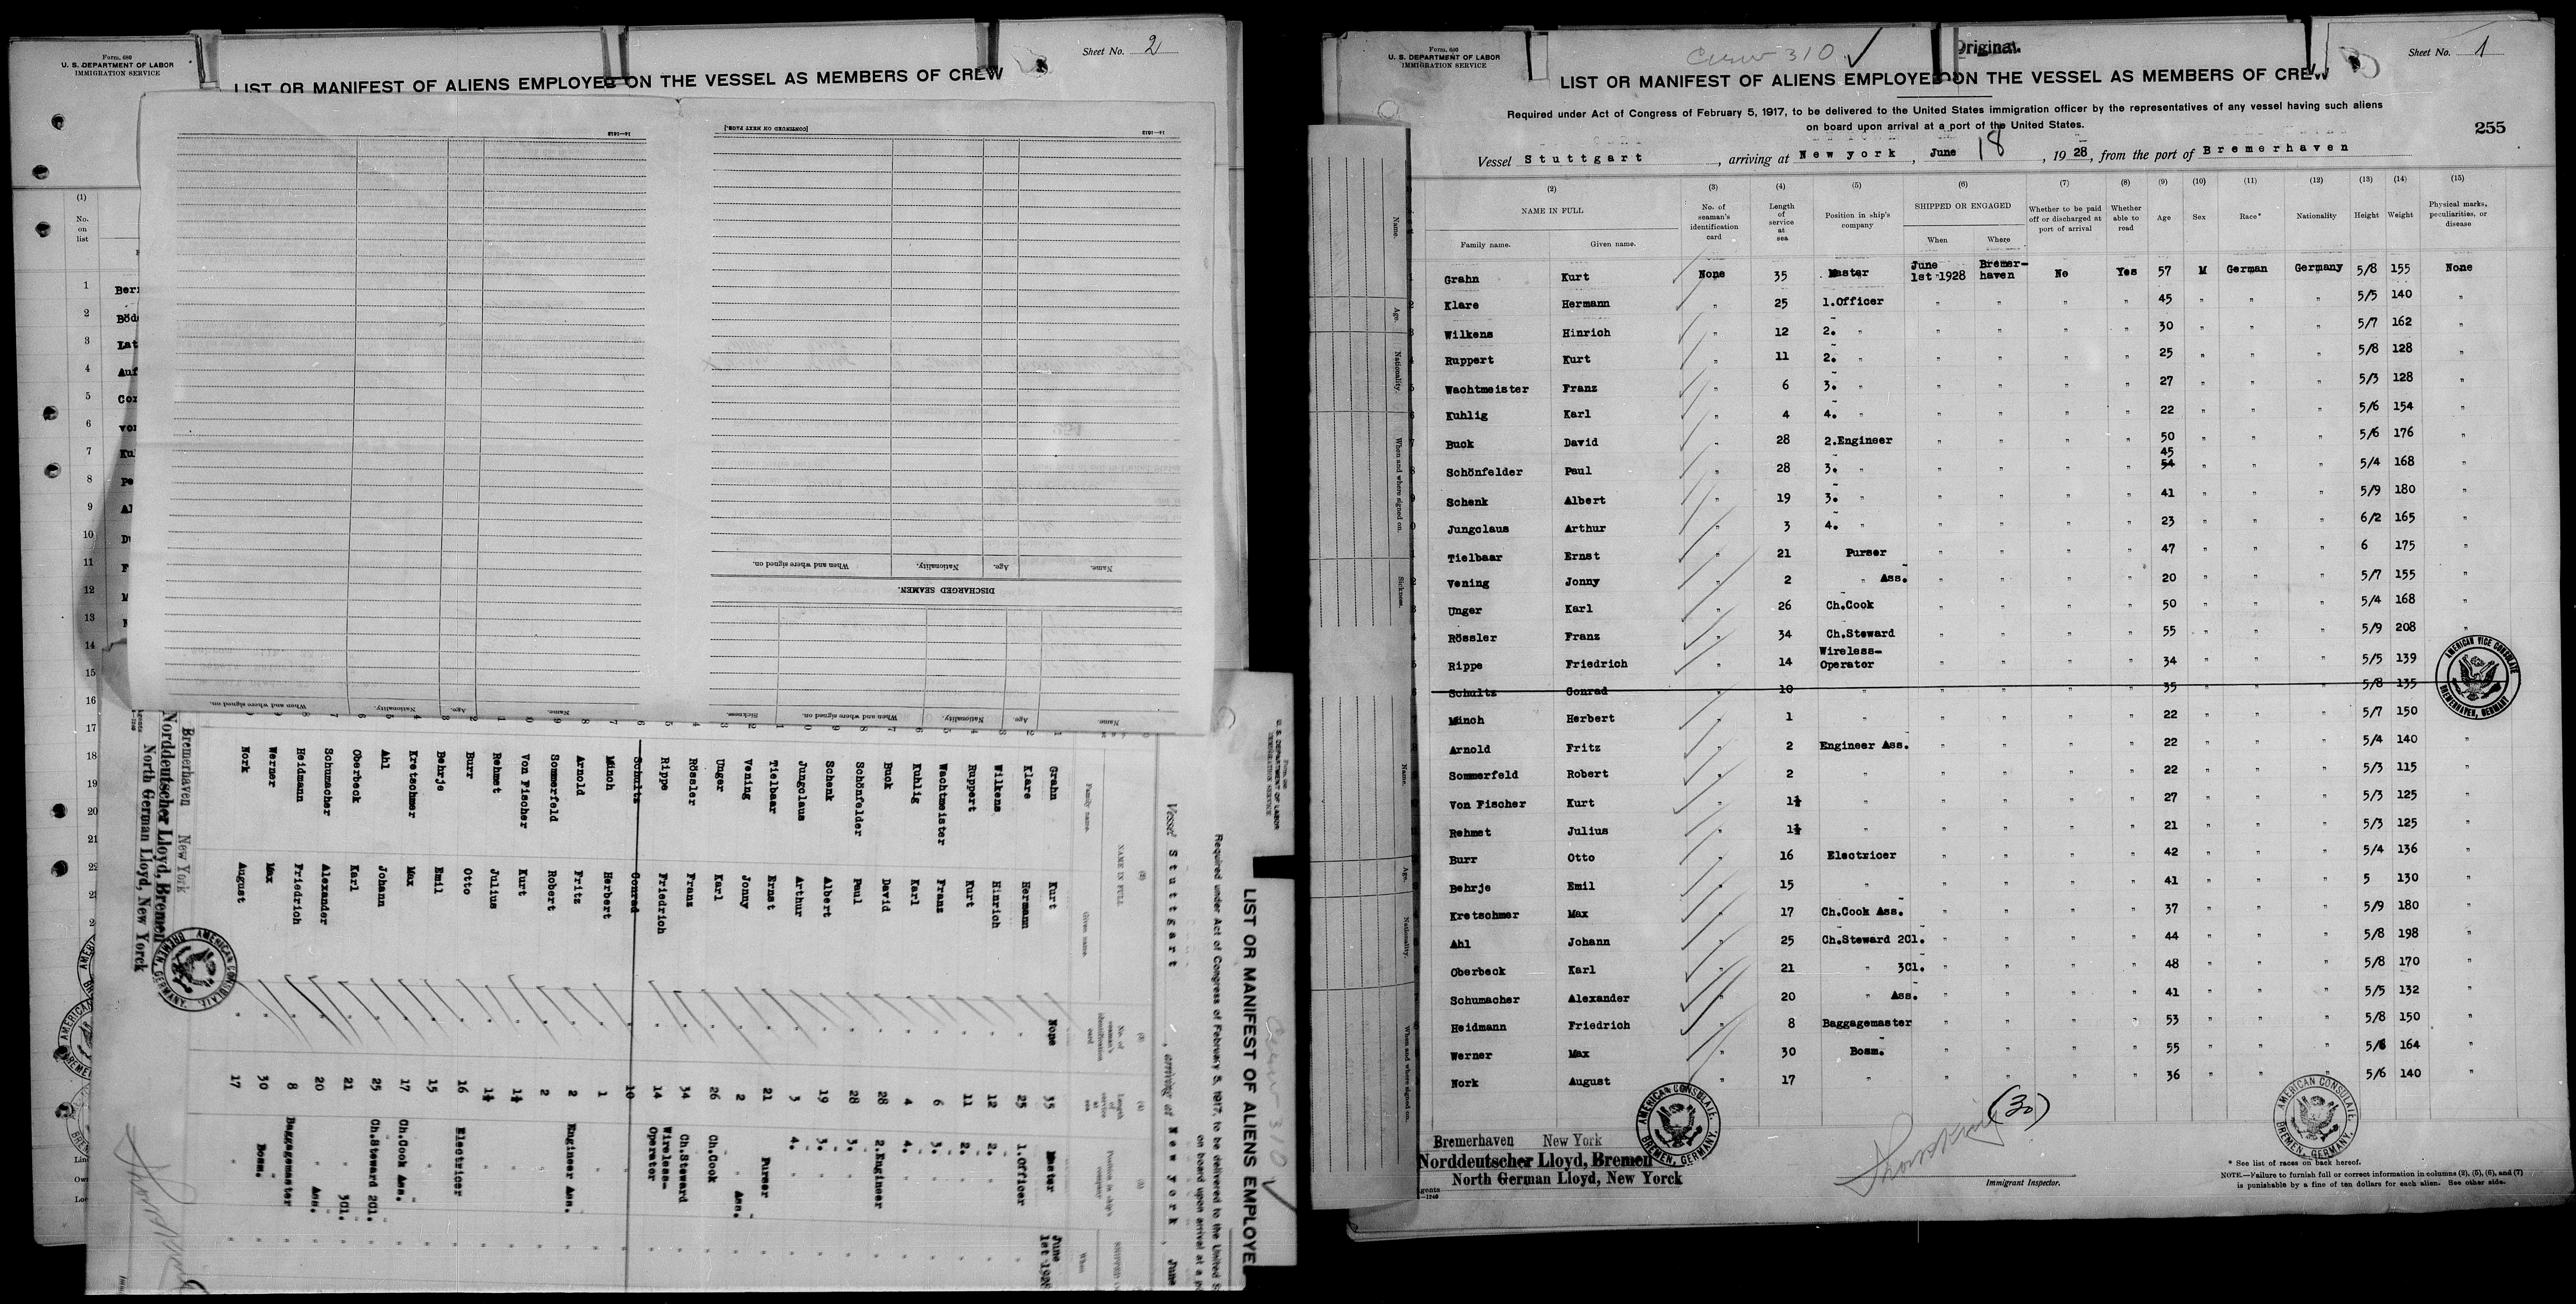 Form. 680
U. S. DEPARTMENT OF LABOR
IMMIGRATION SERVICE
Sheet No. 2
LIST OR MANIFEST OF ALIENS EMPLOYED ON THE VESSEL AS MEMBERS OF CREW
(1)
No.
on
list
1
2
3
4
5
6
7
8
9
10
11
12
13
14
15
16
17
18
19
20
21
[CONTINUED ON NEXT PAGE.]
When and where signed on.
Nationality.
Age.
Name.
DISCHARGED SEAMEN.
Sickness.
When and where signed on.
Nationality.
Age.
Name.
When and where signed on.
Nationality.
Age.
Name.
LIST OR MANIFEST OF ALIENS EMPLOYE
Crew 310 ✓
Required under Act of Congress of February 5, 1917, to be delivered to the United S
on board upon arrival at a p
Vessel Stuttgart, arriving at New york, June
(2)
NAME IN FULL
Family name. Given name.
(3)
No. of
seaman's
identification
card
(4)
Length
of
service
at
sea
(5)
Position in ship's
company
When
Grahn Kurt None 35 Master June 1st 1928
Klare Hermann " 25 1.Officer "
Wilkens Hinrich " 12 2. " "
Ruppert Kurt " 11 2. " "
Wachtmeister Franz " 6 3. " "
Kuhlig Karl " 4 4. " "
Buck David " 28 2.Engineer "
Schönfelder Paul " 28 3. " "
Schenk Albert " 19 3. " "
Jungclaus Arthur " 3 4. " "
Tielbaar Ernst " 21 Purser "
Vening Jonny " 2 " Ass. "
Unger Karl " 26 Ch.Cook "
Rössler Franz " 34 Ch.Steward "
Rippe Friedrich " 14 Wireless-Operator "
Schultz Conrad " 10 " "
Münch Herbert " 1 " "
Arnold Fritz " 2 Engineer Ass. "
Sommerfeld Robert " 2 " "
Von Fischer Kurt " 1½ " "
Rehmet Julius " 1½ " "
Burr Otto " 16 Electricer "
Behrje Emil " 15 " "
Kretschmer Max " 17 Ch.Cook Ass. "
Ahl Johann " 25 Ch.Steward 2Cl. "
Oberbeck Karl " 21 " 3Cl. "
Schumacher Alexander " 20 " Ass. "
Heidmann Friedrich " 8 Baggagemaster "
Werner Max " 30 Bosm. "
Nork August " 17 " "
Bremerhaven New York
Norddeutscher Lloyd, Bremen
North German Lloyd, New Yorck
AMERICAN CONSULATE.
BREMEN, GERMANY.
Form. 680
U. S. DEPARTMENT OF LABOR
IMMIGRATION SERVICE
Crew 310 ✓
Original.
Sheet No. 1
LIST OR MANIFEST OF ALIENS EMPLOYED ON THE VESSEL AS MEMBERS OF CREW
Required under Act of Congress of February 5, 1917, to be delivered to the United States immigration officer by the representatives of any vessel having such aliens
on board upon arrival at a port of the United States.
255
Vessel Stuttgart, arriving at New york, June 18, 1928, from the port of Bremerhaven
(2) (3) (4) (5) (6) (7) (8) (9) (10) (11) (12) (13) (14) (15)
NAME IN FULL
Family name. Given name.
No. of
seaman's
identification
card
Length
of
service
at
sea
Position in ship's
company
SHIPPED OR ENGAGED
When Where
Whether to be paid
off or discharged at
port of arrival
Whether
able to
read
Age
Sex
Race*
Nationality
Height
Weight
Physical marks,
peculiarities, or
disease
Grahn Kurt None 35 Master June 1st 1928 Bremer-haven No Yes 57 M German Germany 5/8 155 None
Klare Hermann " 25 1.Officer " " " " 45 " " " 5/5 140 "
Wilkens Hinrich " 12 2. " " " " " 30 " " " 5/7 162 "
Ruppert Kurt " 11 2. " " " " " 25 " " " 5/8 128 "
Wachtmeister Franz " 6 3. " " " " " 27 " " " 5/3 128 "
Kuhlig Karl " 4 4. " " " " " 22 " " " 5/6 154 "
Buck David " 28 2.Engineer " " " " 50 " " " 5/6 176 "
Schönfelder Paul " 28 3. " " " " " 45 54 " " " 5/4 168 "
Schenk Albert " 19 3. " " " " " 41 " " " 5/9 180 "
Jungclaus Arthur " 3 4. " " " " " 23 " " " 6/2 165 "
Tielbaar Ernst " 21 Purser " " " " 47 " " " 6 175 "
Vening Jonny " 2 " Ass. " " " " 20 " " " 5/7 155 "
Unger Karl " 26 Ch.Cook " " " " 50 " " " 5/4 168 "
Rössler Franz " 34 Ch.Steward " " " " 55 " " " 5/9 208 "
Rippe Friedrich " 14 Wireless-Operator " " " " 34 " " " 5/5 139 "
Schultz Conrad " 10 " " " " " 35 " " " 5/8 135 "
Münch Herbert " 1 " " " " " 22 " " " 5/7 150 "
Arnold Fritz " 2 Engineer Ass. " " " " 22 " " " 5/4 140 "
Sommerfeld Robert " 2 " " " " " 22 " " " 5/3 115 "
Von Fischer Kurt " 1½ " " " " " 27 " " " 5/3 125 "
Rehmet Julius " 1½ " " " " " 21 " " " 5/3 125 "
Burr Otto " 16 Electricer " " " " 42 " " " 5/4 136 "
Behrje Emil " 15 " " " " " 41 " " " 5 130 "
Kretschmer Max " 17 Ch.Cook Ass. " " " " 37 " " " 5/9 180 "
Ahl Johann " 25 Ch.Steward 2Cl. " " " " 44 " " " 5/8 198 "
Oberbeck Karl " 21 " 3Cl. " " " " 48 " " " 5/8 170 "
Schumacher Alexander " 20 " Ass. " " " " 41 " " " 5/5 132 "
Heidmann Friedrich " 8 Baggagemaster " " " " 53 " " " 5/8 150 "
Werner Max " 30 Bosm. " " " " 55 " " " 5/6 164 "
Nork August " 17 " " " " " 36 " " " 5/6 140 "
AMERICAN VICE CONSULATE
BREMERHAVEN, GERMANY
(30)
Bremerhaven New York
Norddeutscher Lloyd, Bremen
North German Lloyd, New Yorck
AMERICAN CONSULATE.
BREMEN, GERMANY.
AMERICAN CONSULATE
BREMEN, GERMANY.
Immigrant Inspector.
* See list of races on back hereof.
NOTE.—Failure to furnish full or correct information in columns (2), (5), (6), and (7)
is punishable by a fine of ten dollars for each alien. See other side.